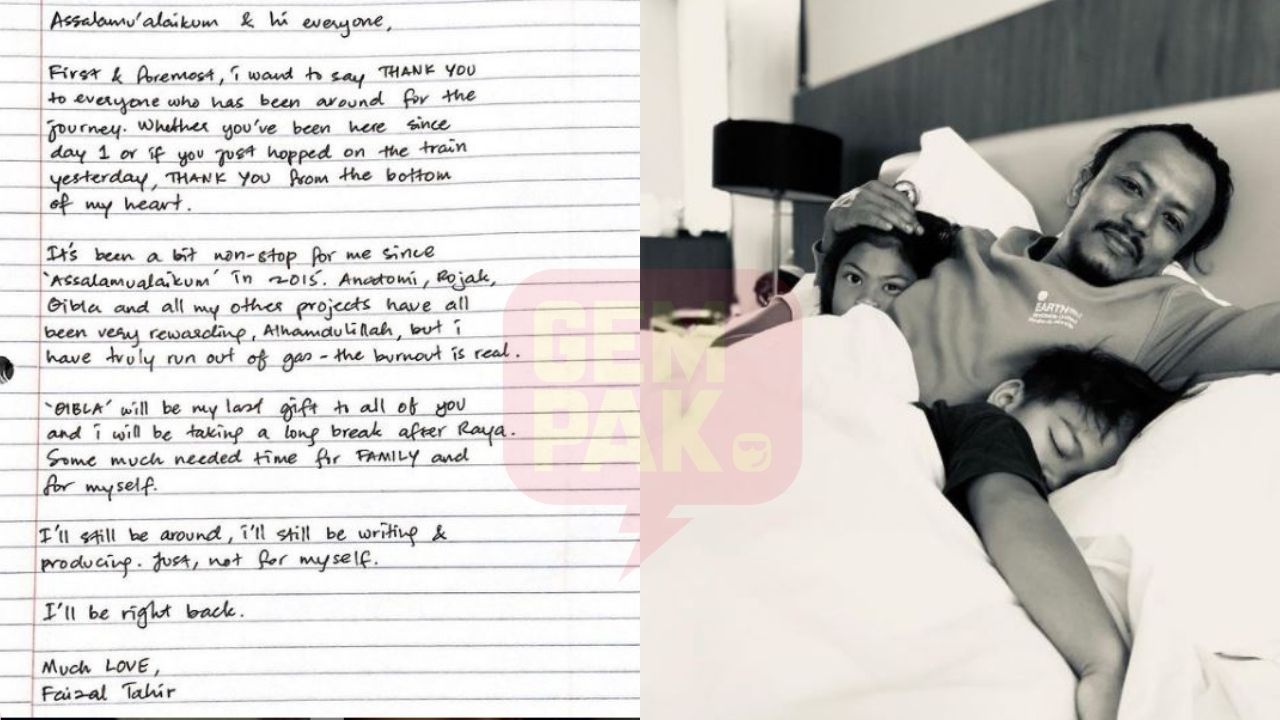 Assalamu'alaikum & hi everyone,
First & foremost, i want to say THANK YOU
to everyone who has been around for the
journey. Whether you've been here since
day 1 or if you just hopped on the train
yesterday, THANK YOU from the bottom
of my heart.
It's been a bit non-stop for me since
'Assalamualaikum' in 2015. Anatomi, Rojak,
Qibla and all my other projects have all
been very rewarding, Alhamdulillah, but i
have truly run out of gas - the burnout is real.
'QIBLA' will be my last gift to all of you
and i will be taking a long break after Raya.
Some much needed time for FAMILY and
for myself.
I'll still be around, i'll still be writing &
producing. Just, not for myself.
I'll be right back.
Much LOVE,
Faizal Tahir
GEM
PAK
EARTH